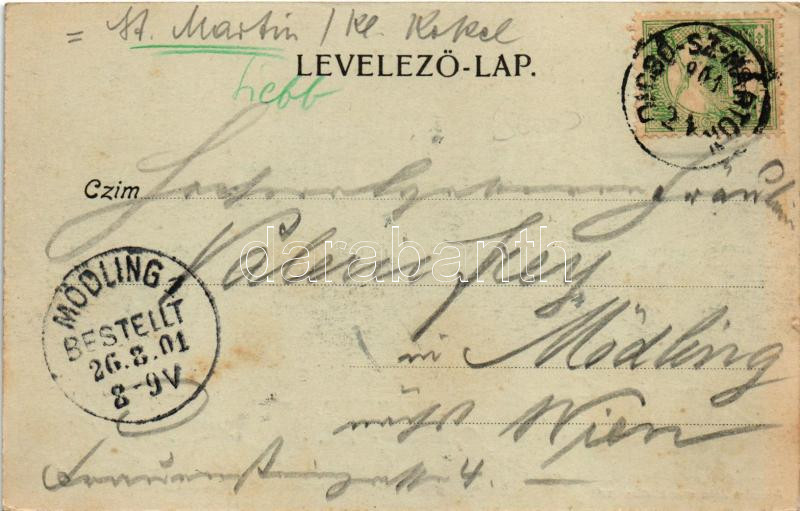 = St. Martin / Kl. Kokel
LEVELEZŐ-LAP.
DICSŐ-SZ-MÁRTON
901
Czim Hochwohlgeboren Fräulein
in Mödling
nächst Wien
Frauensteingasse 4.
MÖDLING 1
BESTELLT
26.8.01
8-9V
darabanth